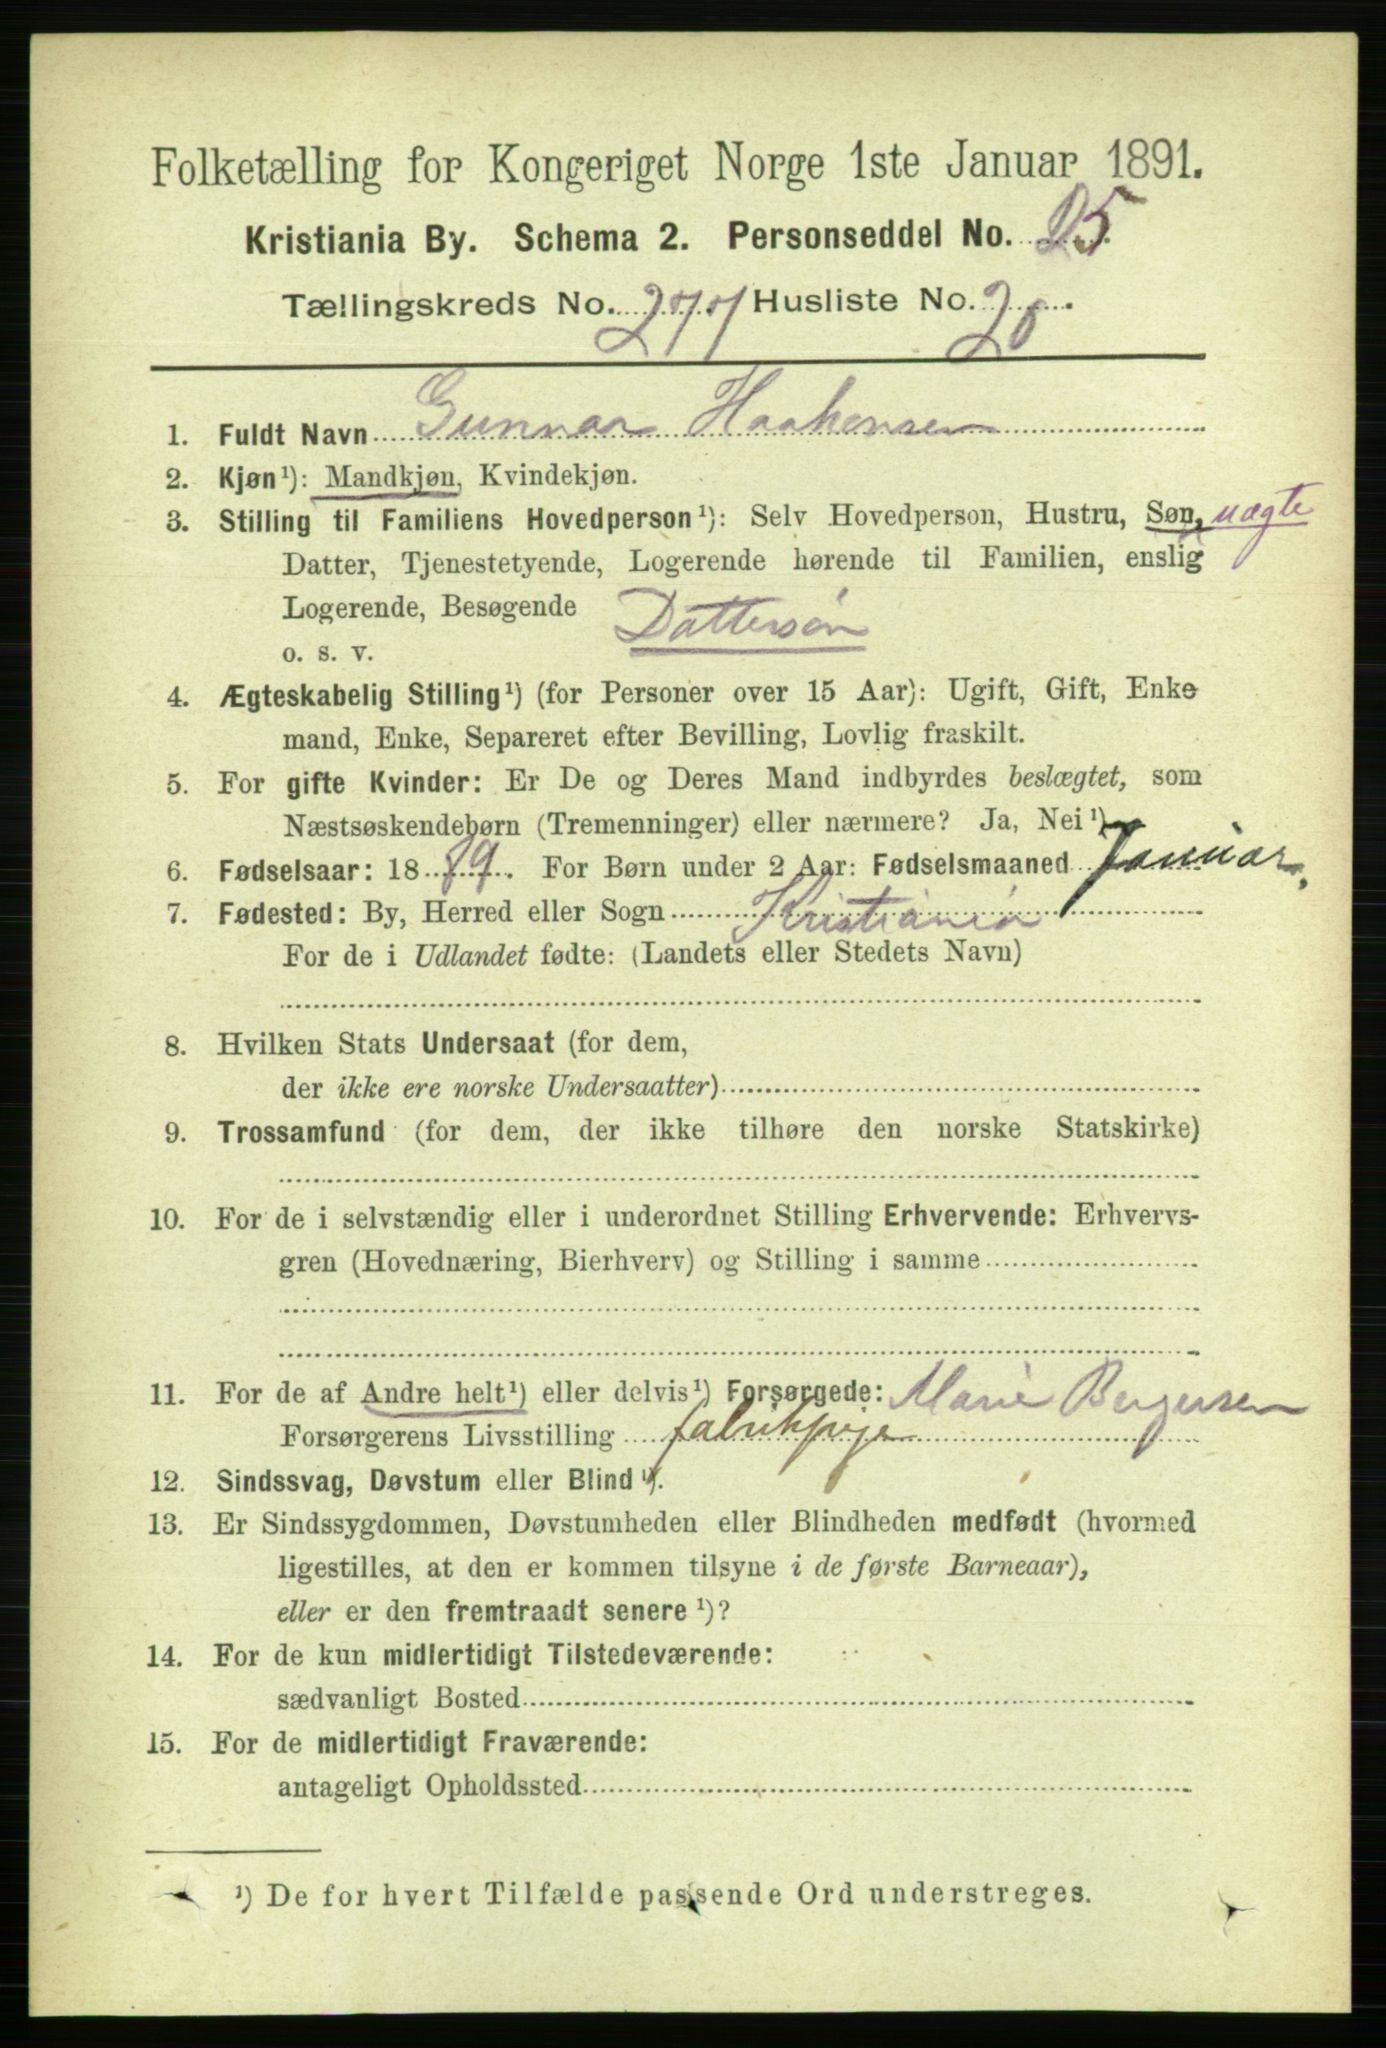 Folketælling for Kongeriget Norge 1ste Januar 1891.
Kristiania By. Schema 2. Personseddel No. 25
Tællingskreds No. 277 Husliste No. 20.
1. Fuldt Navn Gunnar Haakensen
2. Kjøn¹): Mandkjøn, Kvindekjøn.
3. Stilling til Familiens Hovedperson¹): Selv Hovedperson, Hustru, Søn, uægte
Datter, Tjenestetyende, Logerende hørende til Familien, enslig
Logerende, Besøgende Dattersøn
o. s. v.
4. Ægteskabelig Stilling¹) (for Personer over 15 Aar): Ugift, Gift, Enke
mand, Enke, Separeret efter Bevilling, Lovlig fraskilt.
5. For gifte Kvinder: Er De og Deres Mand indbyrdes beslægtet, som
Næstsøskendebørn (Tremenninger) eller nærmere? Ja, Nei¹)
6. Fødselsaar: 1889. For Børn under 2 Aar: Fødselsmaaned Januar.
7. Fødested: By, Herred eller Sogn Kristiania
For de i Udlandet fødte: (Landets eller Stedets Navn)
8. Hvilken Stats Undersaat (for dem,
der ikke ere norske Undersaatter)
9. Trossamfund (for dem, der ikke tilhøre den norske Statskirke)
10. For de i selvstændig eller i underordnet Stilling Erhvervende: Erhvervs-
gren (Hovednæring, Bierhverv) og Stilling i samme
11. For de af Andre helt¹) eller delvis¹) Forsørgede: Marie Bergersen
Forsørgerens Livsstilling fabrikpige
12. Sindssvag, Døvstum eller Blind¹).
13. Er Sindssygdommen, Døvstumheden eller Blindheden medfødt (hvormed
ligestilles, at den er kommen tilsyne i de første Barneaar),
eller er den fremtraadt senere¹)?
14. For de kun midlertidigt Tilstedeværende:
sædvanligt Bosted
15. For de midlertidigt Fraværende:
antageligt Opholdssted
¹) De for hvert Tilfælde passende Ord understreges.